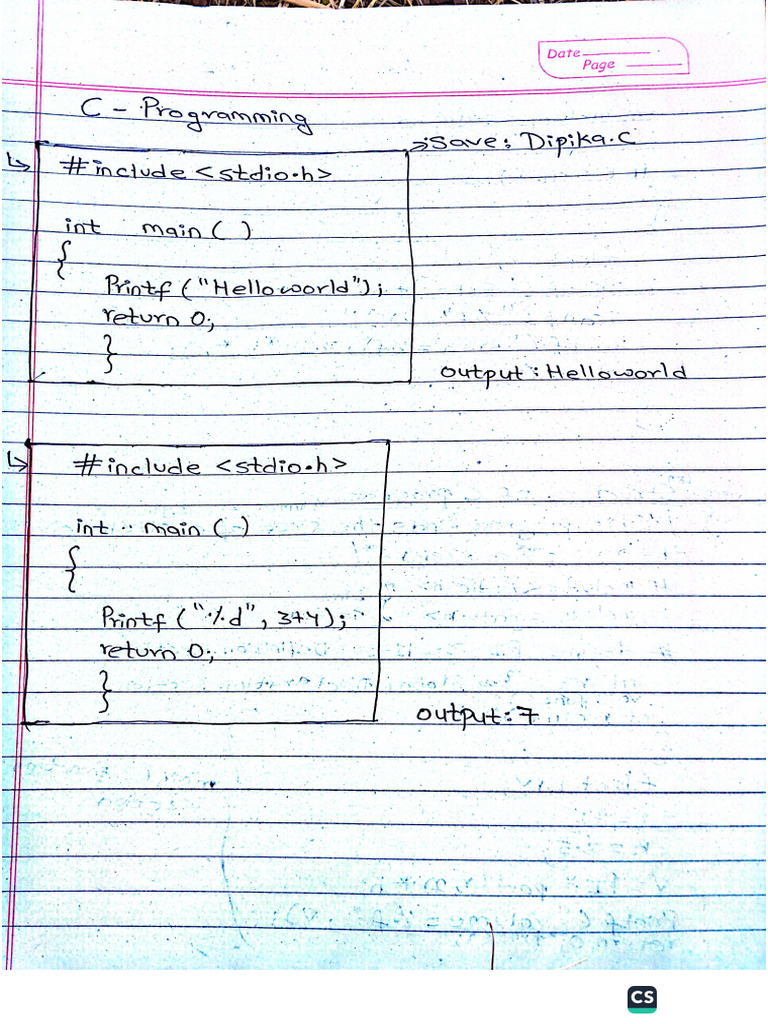 Date
Page
C - Programming
→ save: Dipika.C
↳ #include <stdio.h>
int main ( )
{
Printf ("Helloworld");
return 0;
}
output: Helloworld
↳ #include <stdio.h>
int main ( )
{
Printf ("%d", 3+4);
return 0;
}
output: 7
CS